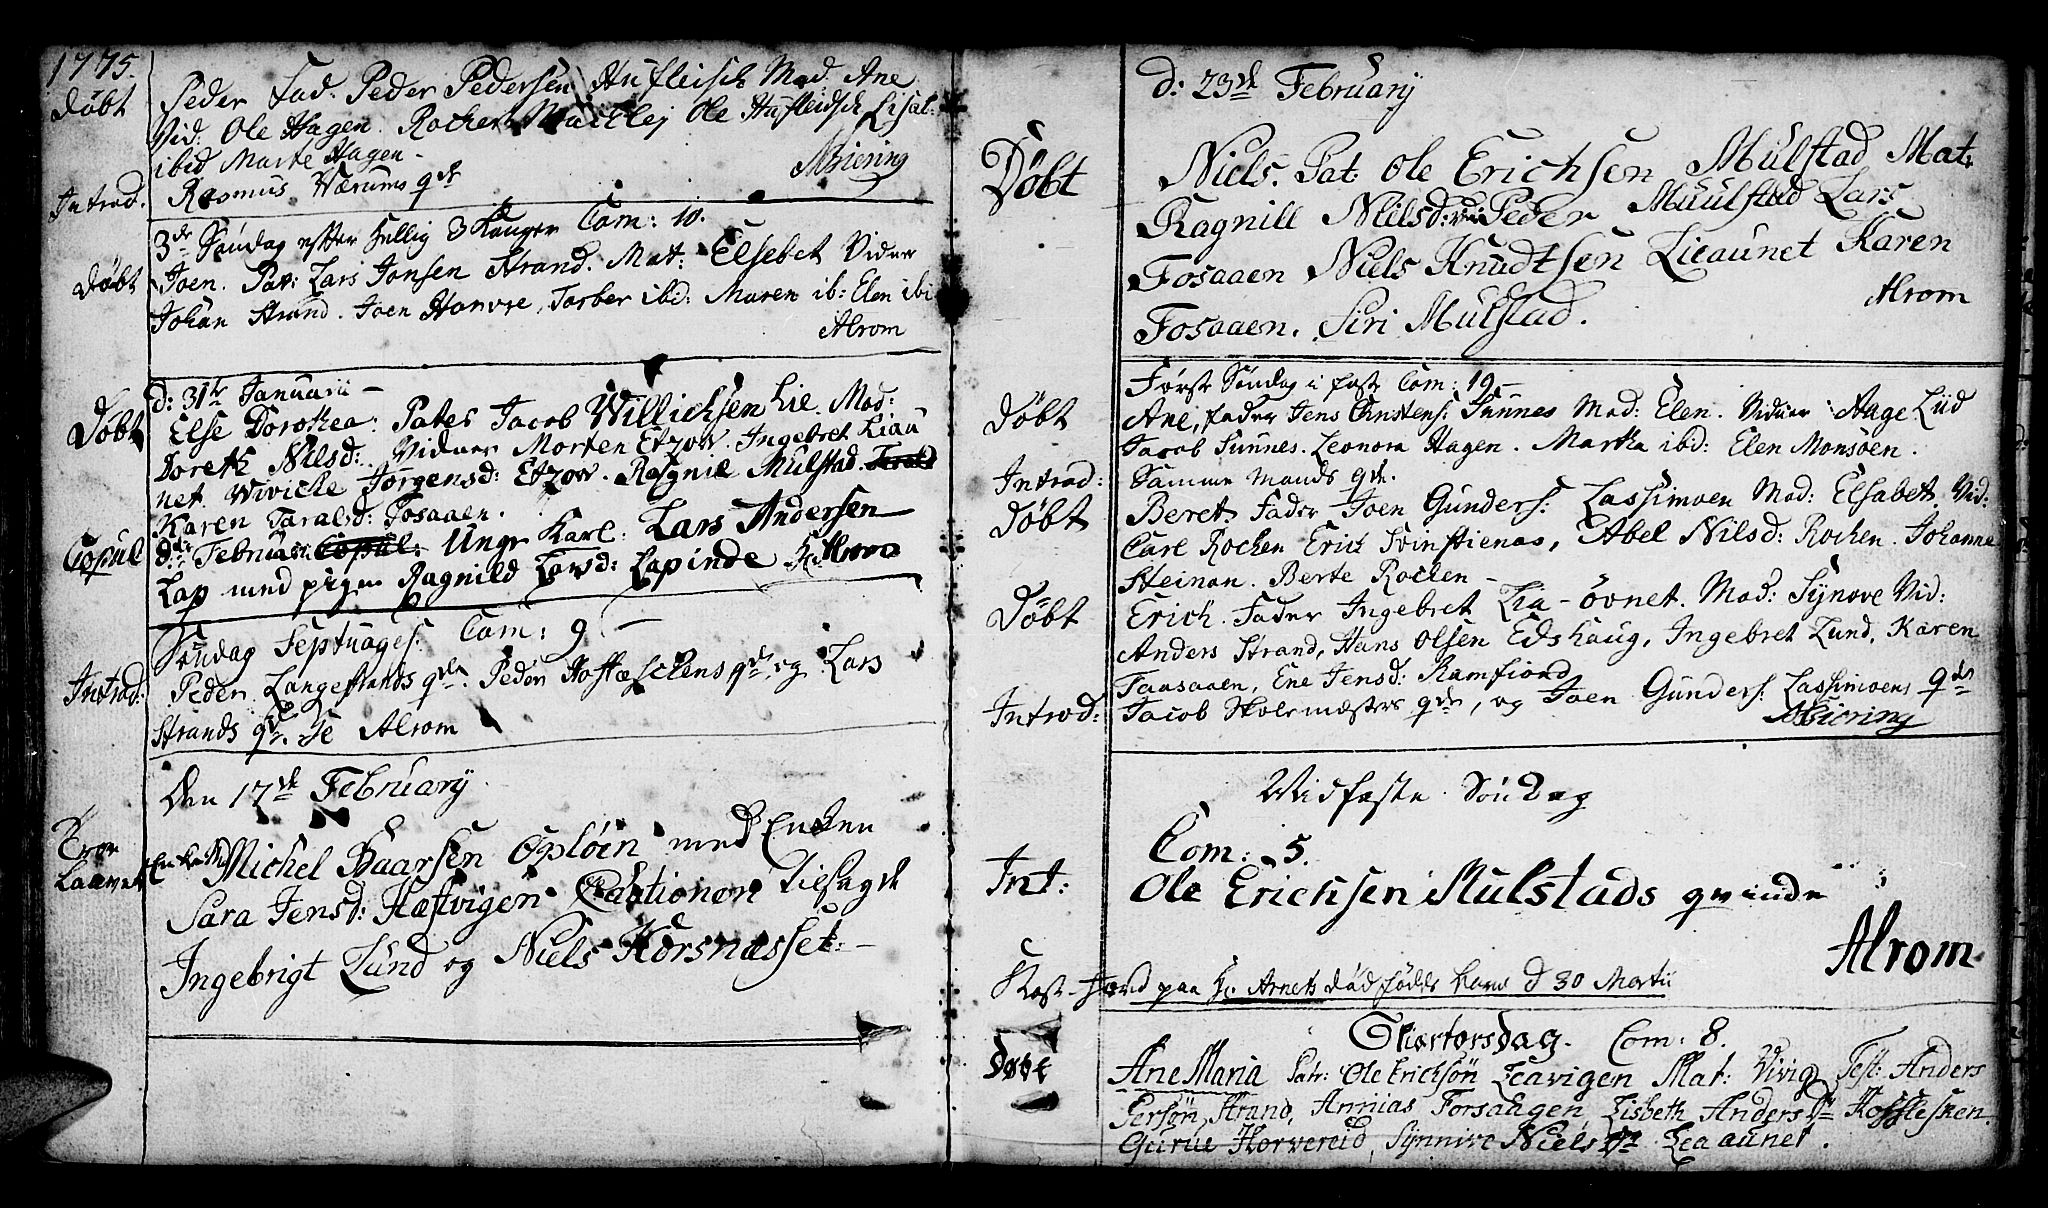 1775.
Døbt
Peder Fad: Peder Pedersen Hufleisch Mod. Ane
Vid: Ole Hagen. Ole Hufleidsch Lisab:
ibid Marte Hagen -
MBiering
Introd. Rasmus Værums qde
3de Søndag efter Hellig 3 Konger Com: 10.
Døbt Joen. Pat: Lars Jonsen Strand. Mat: Elsebet Vidner
Johan Strand. Joen Horvre, Torber ibd: Maren ib: Elen ibi
Alrom
d: 31te Januarii -
Døbt Else Dorothea: Pater Jacob Willichsen Lie. Mod:
Doreth Nilsd: Vidner Morten Etzow. Ingebret Liau
net. Wiviche Jørgensd: Etzow. Ragnil Mulstad.
Karen Taralsd: Fosaaen.
Copul d: Februar: Copul: Ungr Karl: Lars Andersen
Lap med pigen Ragnild Larsd: Lapinde Alrom
Søndag Septuages: Com: 9 -
Introd: Peder Langestrands qde. Peder Hofleschens qde og Lars
Strands qde. Alrom
Den 17de February.
Troe Laavet Enke M. Michel Baarsen Opløin med Enken
Sara Jensd: Hæstvigen Cautionen tilsagde
Ingebrigt Lund og Niels Horsnæsset: -
d: 23de February
Døbt Niels. Pat: Ole Erichsen Mulstad Mat:
Ragnill Nielsd: vid Peder Muulstad Lars
Fosaaen Niels Knudtsen Lieaunet Karen
Alrom
Fosaaen. Siri Mulstad.
Første Søndag i faste Com: 19 -
Døbt Ane, fader Jens Christens: Sunnes Mod: Elen. Vidner Aage Lüd
Jacob Sunnes. Leonora Hagen. Martha ibid: Elen Monsøen.
Introd: Samme Mands qde.
Døbt Beret. Fader Joen Gunders: Lassimoen Mod: Elsabet. Vid:
Carl Rochen Erich Svinstienas, Abel Nilsd: Rochen. Johanne
Steinan. Berte Rochen -
Døbt Erich. Fader Ingebret Lia-øvnet. Mod: Synove Vid:
Anders Strand, Hans Olsen Edshaug, Ingebret Lund, Karen
Faasaaen, Ene Jensd: Ramfiord
Introd: Jacob Skolemesters qde, og Joen Gunders: Lassimoens qde
MBiering
Midfaste Søndag
Com: 5.
Int: Ole Erichsen Mulstads qvinde
Alrom
paa Arnets dødfødde barn d 30 Martii
Skiertorsdag. Com: 8.
Døbt Ane Maria Patr: Ole Erichsøn Leavigen Mat: Vivig Test: Anders
Persøn Strand, Annias Forsaugen, Lisbeth Andersdr Hofflesken
Gurue Horvereid, Synnive Nielsdr Leaaunet.